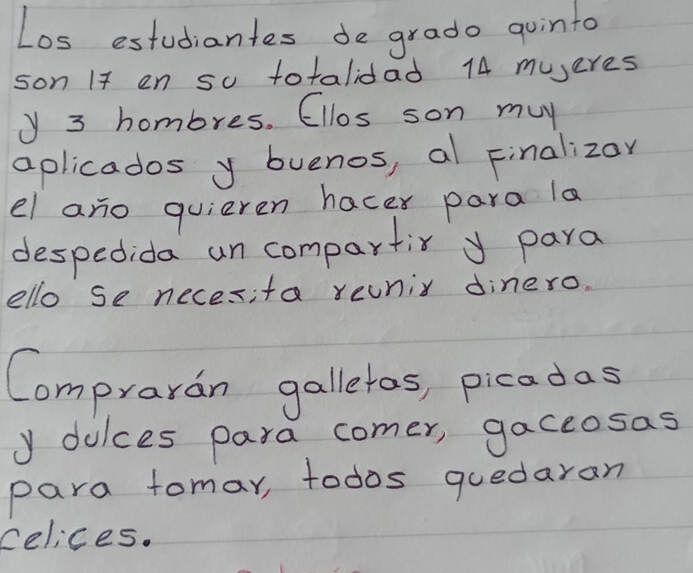 Los estudiantes de grado quinto
son 17 en su totalidad 14 mujeres
y 3 hombres. Ellos son muy
aplicados y buenos, al Finalizar
el año quieren hacer para la
despedida un compartir y para
ello se necesita reunir dinero.
Comprarán galletas, picadas
y dulces para comer, gaceosas
para tomar, todos quedaran
felices.